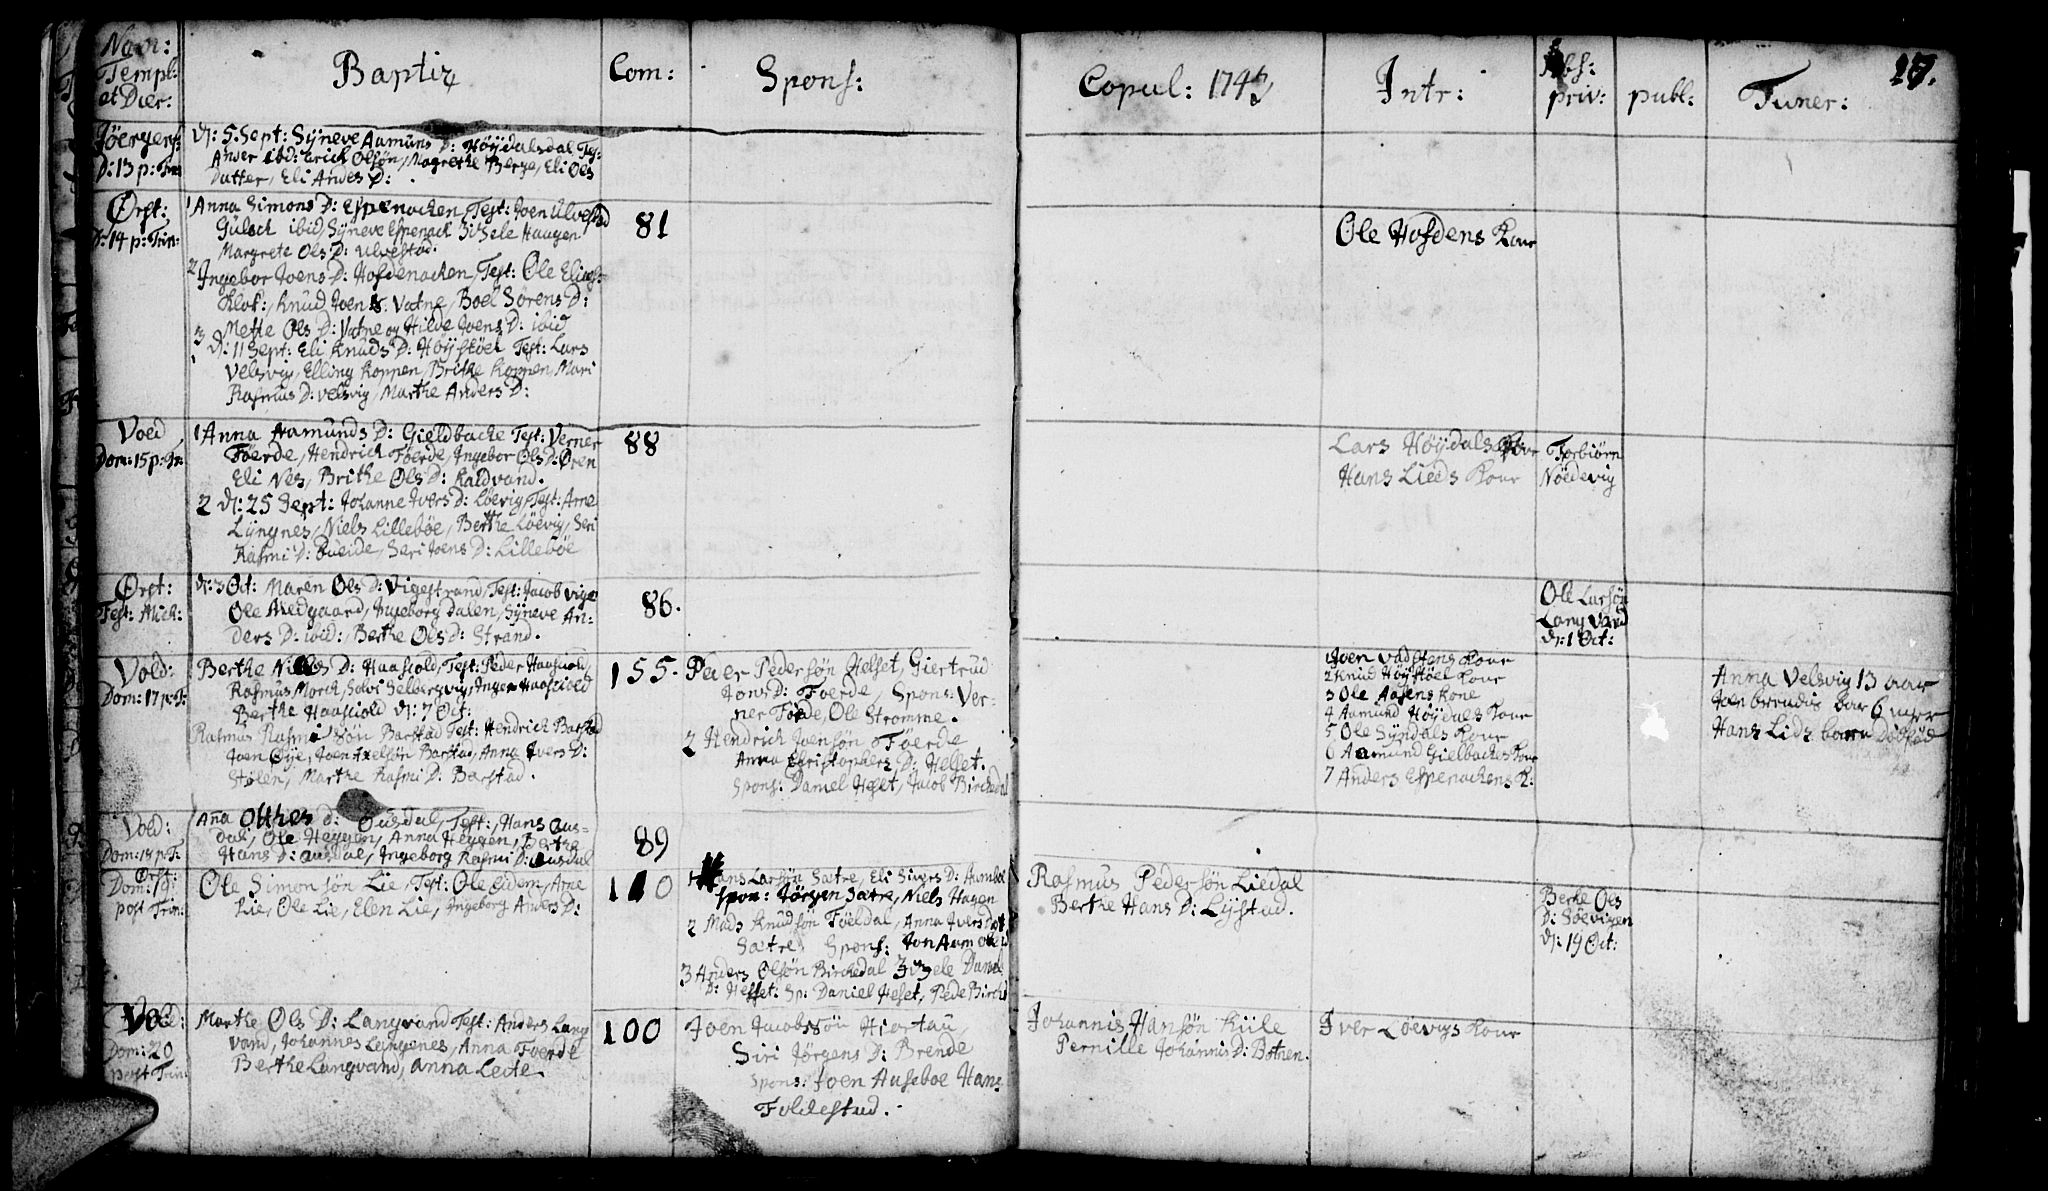 Nom:
Templ:
et Dier:
Baptiz
Com:
Spons:
Copul: 174
Intr:
Abs:
priv:
publ:
Funer:
17.
Jöergens
D: 13 p: Trin
d: 5 Sept: Syneve Aamunds D: Höydalsdal Test:
Ander ibid: Erich Olsön, Magrethe Berge, Eli Ols
Datter, Eli Anders D:
Örst:
D: 14 p: Trin:
1 Anna Simons D: Espenachen, Test: Joen Ulvestad
Gulach ibid, Syneve Espenach Zidsele Haagen
Margrete Ols D: Ulvestad.
2 Ingebor Joens D: Hofdenachen, Test: Ole Elias:
Klok:, Knud Joen S. Vatne, Boel Sörens D:
Mette Ols D: Vatne og Hilde Joens D: ibid
3 d: 11 Sept: Eli Knuds D: Höystöel Test: Lars
Velsvig, Elling Koppen, Brithe Koppen, Mari
Rasmus D: Velsvig, Marthe Anders D:
81
Ole Hofdens Kone
Voed
Dom: 15 p: Tr:
1 Anna Aamunds D: Gieldbache Test: Verner
Föerde, Hendrich Föerde, Ingebor Ols D: Ören
Eli Nes, Brithe Ols D: Kaldvand.
2 d: 25 Sept: Johanne Ivers D: Löevig, Test: Arne
Lyngnes, Niels Lilleböe, Berthe Löevig, Seri
Rasmi D: Bueide, Seri Joens D: Lilleböe
88
Lars Höydals Kone
Hans Lieds Kone
Torbiörn
Nöedevig
Örst:
Fest: Mich:
d: 3 Oct: Maren Ols D: Vigestrand, Test: Jacob Vige
Ole Medgaard, Ingeborg Dalen, Syneve An-
ders D: ibid:, Berthe Ols D: Strand.
86.
Ole Larsön
Langvand
d: 1 Oct:
Vold:
Dom: 17 p: T:
Berthe Niels D: Haaskold, Test: Peder Haaskiold,
Rasmus Morch, Solvi Selbergsvig, Inger Haaskiold
Berthe Haaskiold d: 7 Oct:
Rasmus Rasmi Sön Barstad Test: Hendrich Barstad
Joen Öye, Joen Axelsön Barstad, Anna Ivers D:
Stölen, Marthe Rasmi D: Barstad.
155.
Peter Pedersön Helset, Giertrud
Jons D: Foerde, Spons: Ver-
ner Förde, Ole Stromme.
2 Hendrich Joensön Föerde
Anna Christophers D: Helset.
Spons: Daniel Heset, Jacob Birchedal
1 Joen Vadstens Kone
2 Knud Höystöel Kone
3 Ole Aasens Kone
4 Aamund Höydals Kone
5 Ole Syndals Kone
6 Aamund Gielbaches Kone
7 Anders Espenachens K:
Anna Velsvig 13 aar
Joen brendis bar 6 uger
Hans Lids barn Dödfød
Vold:
Dom: 18 p: T:
Ana Olthes D: Ousdal, Test:, Hans Aus-
dal, Ole Heggen, Anna Heggen, Berthe
Hans D: Ausdal, Ingeborg Rasmi D: Ausdal
89
Örst:
Dom: 19:
post Trin:
Ole Simonsön Lie, Test: Ole Eidem, Arne
Lie, Ole Lie, Elen Lie, Ingeborg Anders D:
110
1 Hans Larsön Sætre, Eli Sivers D: Humbel
Spon: Jörgen Sætre, Niels Hagen
2 Mads Knudsön Föeldal, Anna Ivers Dot
Sætre, Spons: Jon Aam
3 Anders Olsön Birchedal Zidsele Daniel
D: Hesset: Sp: Daniel Heset, Pede Birched
Rasmus Pedersön Liedal
Berthe Hans D: Lystad.
Berte Ols
D: Söevigen
d: 19 Oct:
Vold:
Dom: 20
post Trin:
Marthe Ols D: Langvand Test: Anders Lang
vand, Johannes Lungenes, Anna Foerde
Berthe Langvand, Anna Leite.
100
Joen Jacobsön Hiortau,
Siri Jörgens D: Brende
Spons: Joen Huseboe Hans
Foldestad.
Johannis Hansön Kiile
Pernille Johannis D: Botnen.
Iver Löevigs Kone